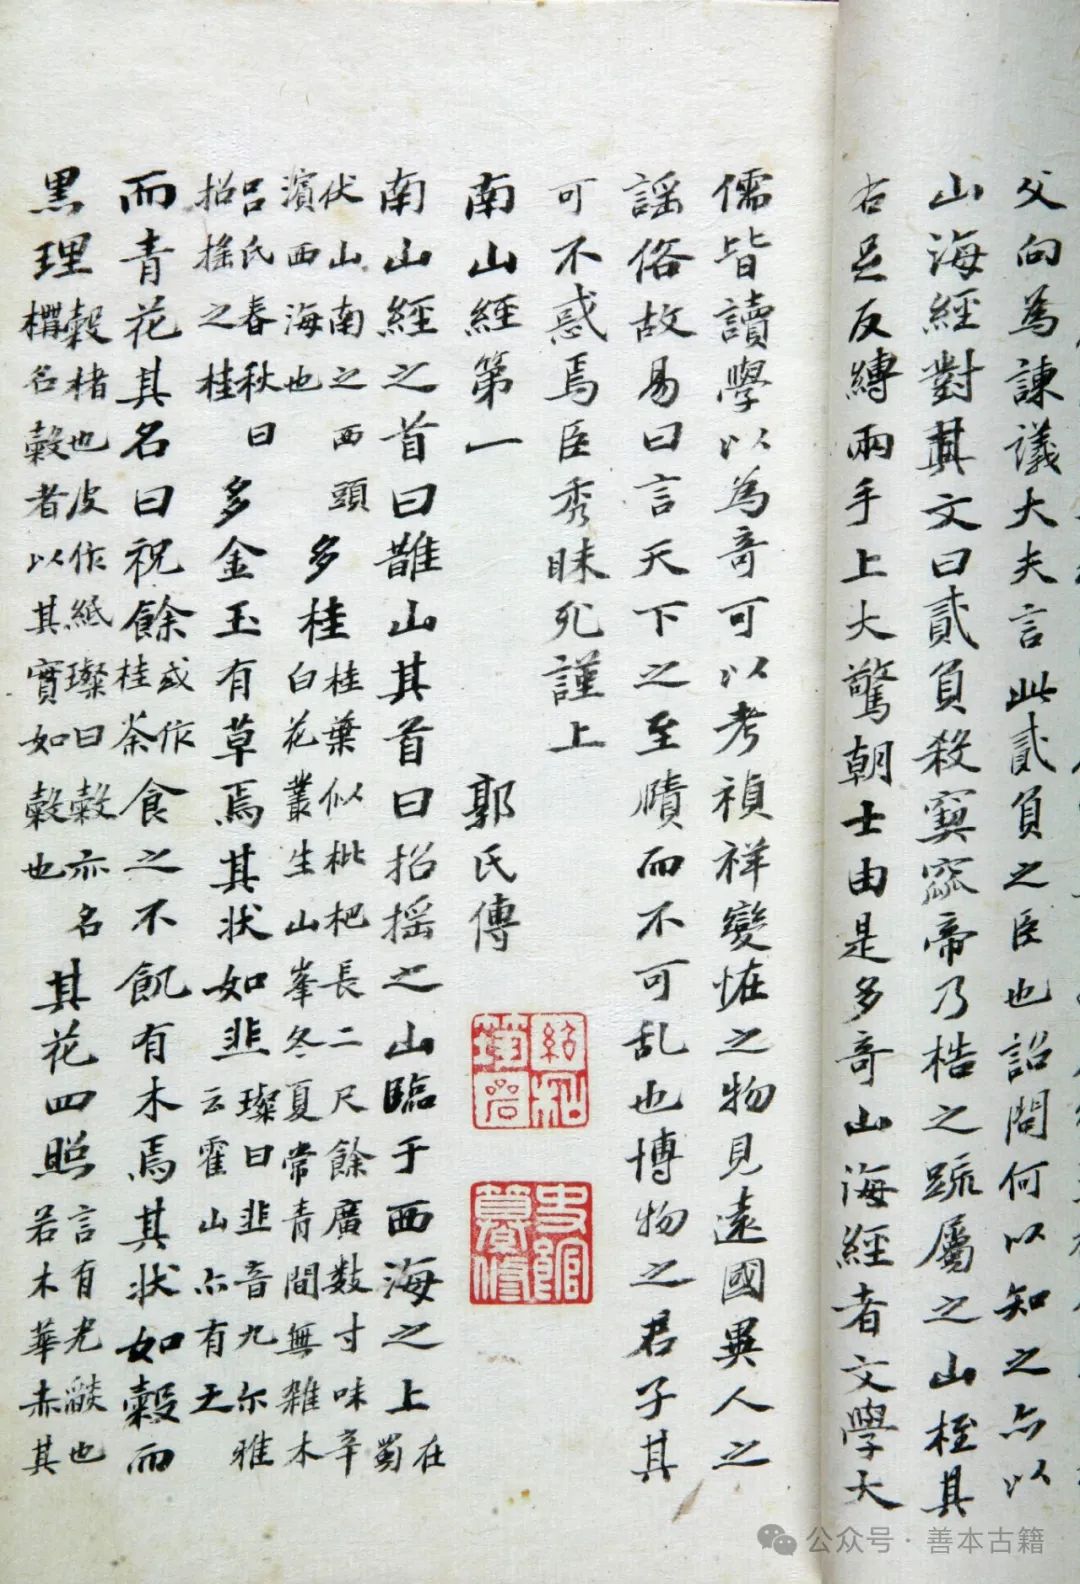 父向為諫議大夫言此貳負之臣也詔問何以知之亦以
山海經對其文曰貳負殺窫窳帝乃梏之踈屬之山桎其
右足反縛兩手上大驚朝士由是多奇山海經者文學大
儒皆讀學以為奇可以考禎祥變恠之物見遠國異人之
謡俗故易曰言天下之至賾而不可乱也博物之君子其
可不惑焉臣秀昧死謹上
南山經第一 郭氏傳
史館纂修
南山經之首曰䧿山其首曰招揺之山臨于西海之上在蜀
伏山南之西頭濵西海也多桂桂葉似枇杷長二尺餘廣数寸味辛白花叢生山峯冬夏常青間無雜木
吕氏春秋曰招揺之桂多金玉有草焉其状如韭璨曰韭音九尔雅云霍山亦有之
而青花其名曰祝餘或作桂荼食之不飢有木焉其状如榖而
黒理榖楮也皮作紙璨曰榖亦名構名榖者以其實如榖也其花四照言有光燄也若木華赤其
公众号·善本古籍